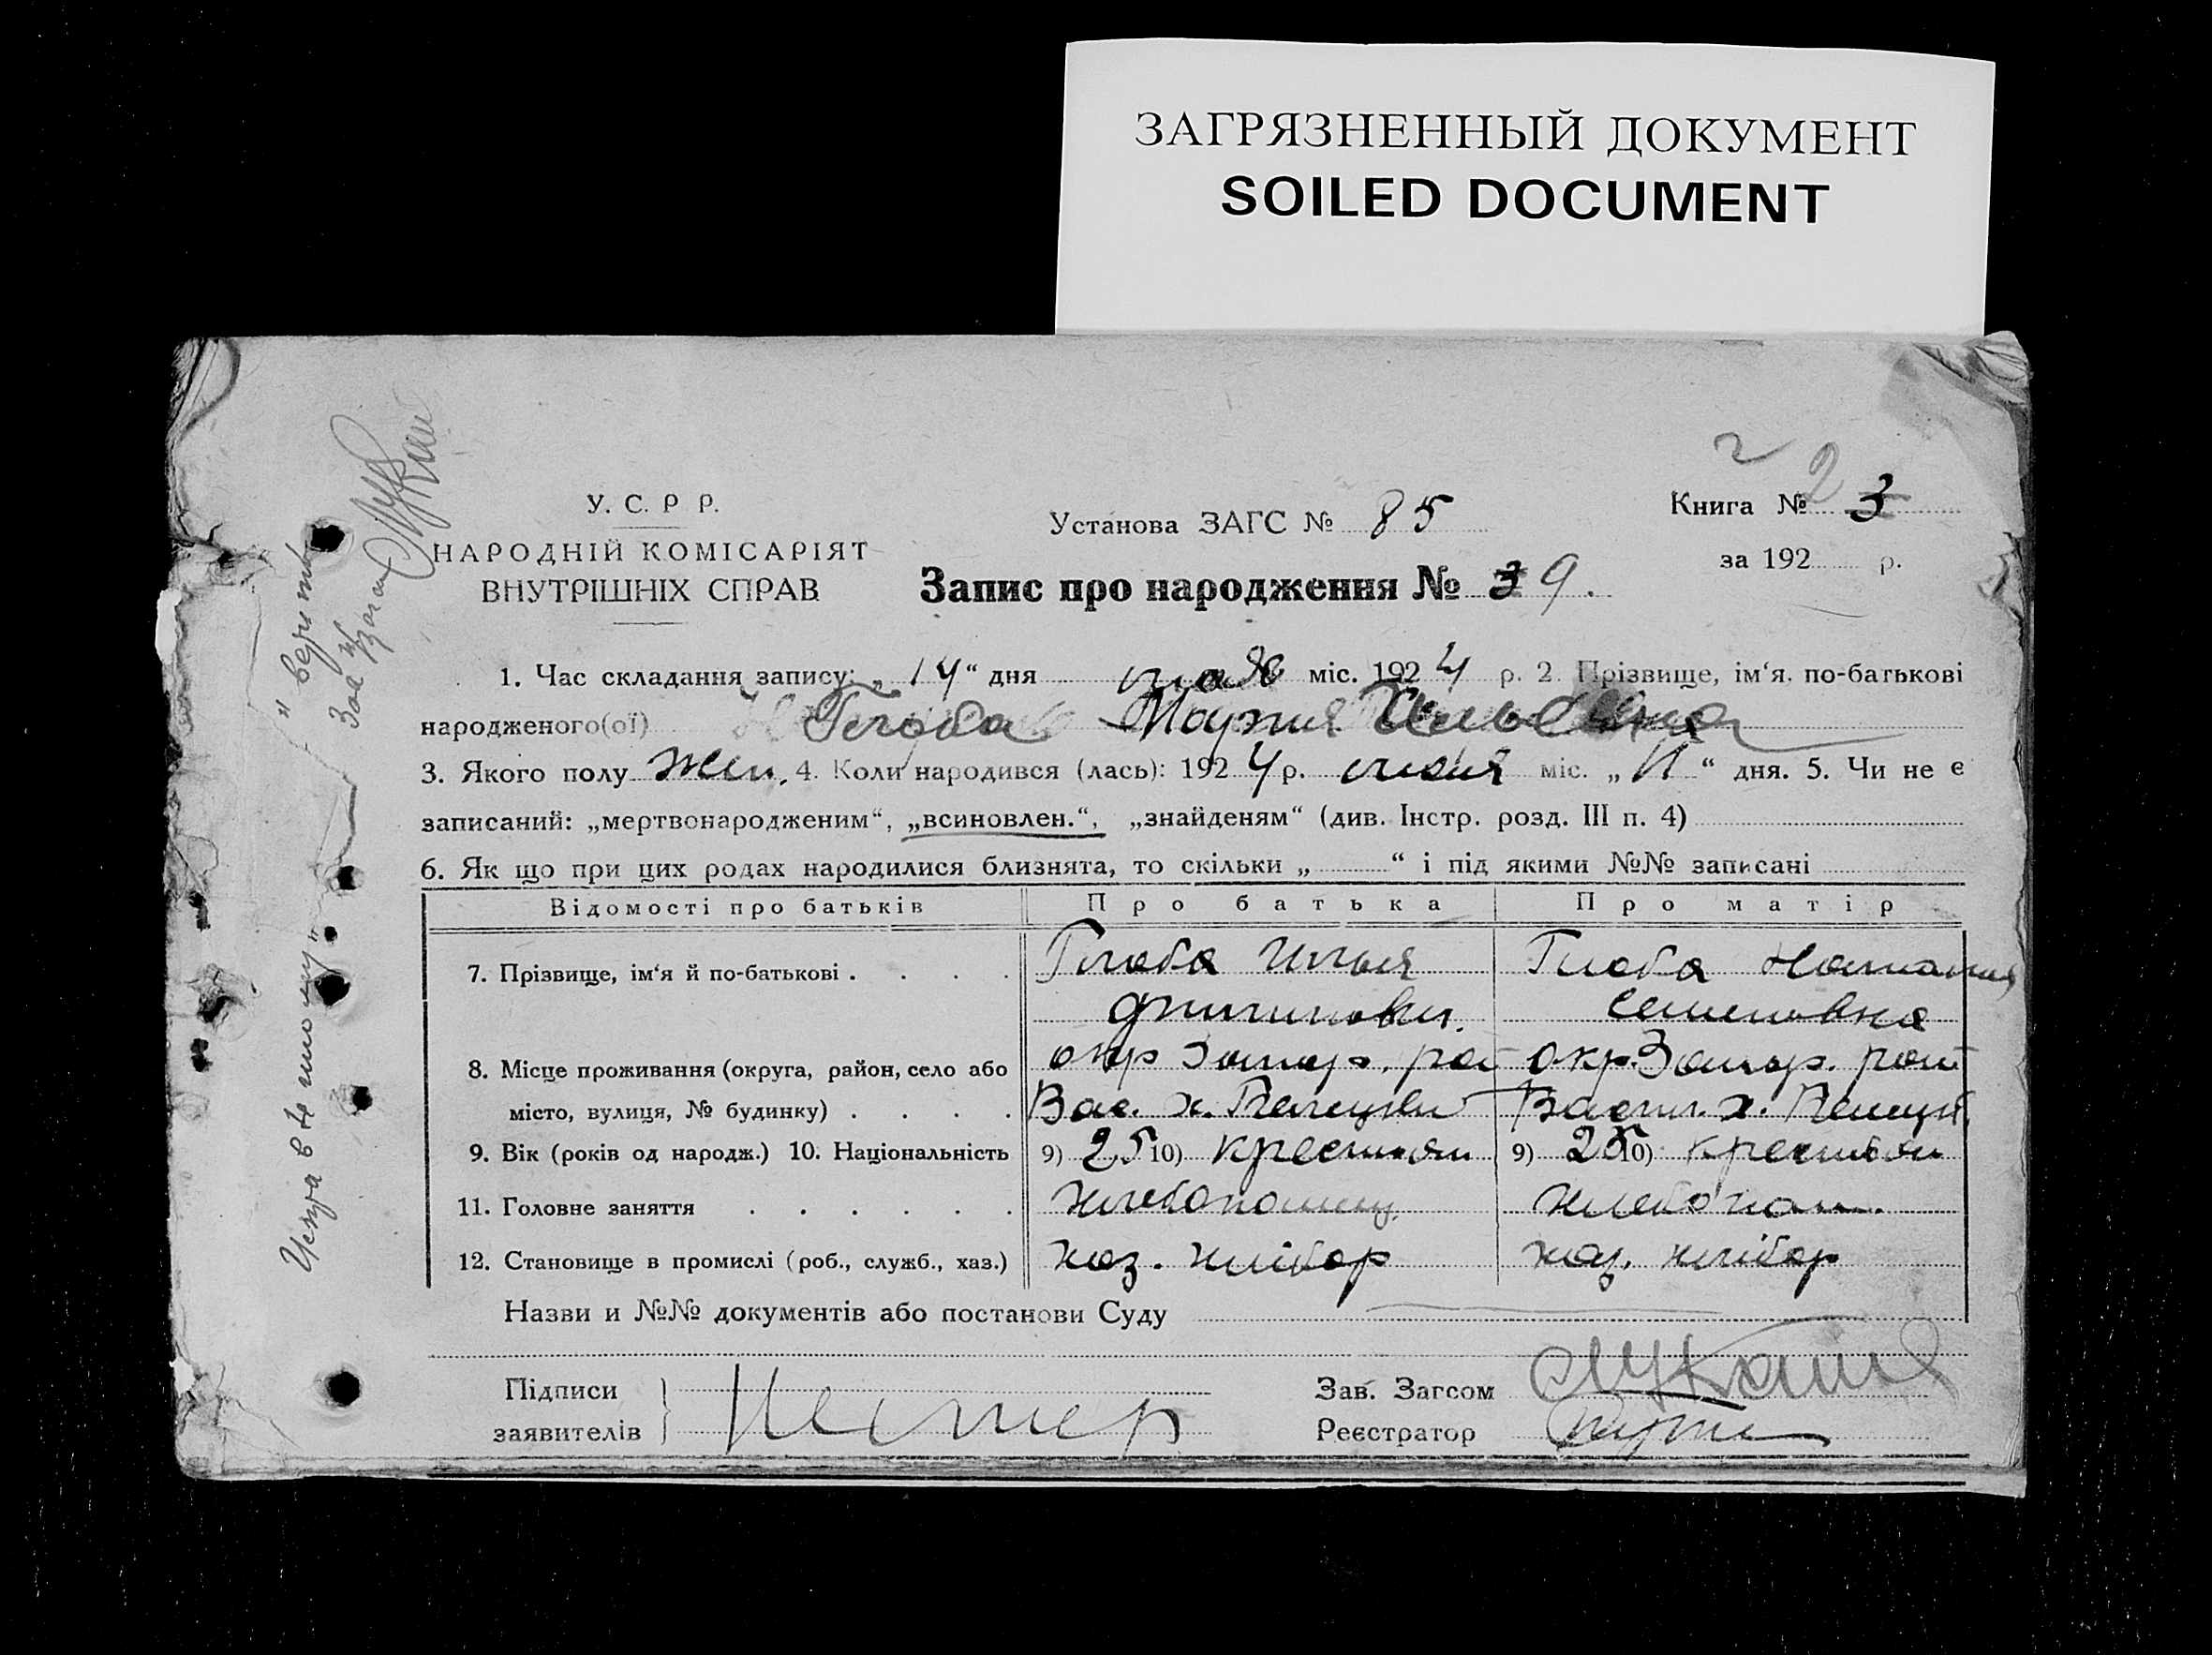 ЗАГРЯЗНЕННЫЙ ДОКУМЕНТ
SOILED DOCUMENT
2
У. С. Р Р.
НАРОДНІЙ КОМІСАРІЯТ
ВНУТРІШНІХ СПРАВ
Установа ЗАГС № 85
Книга № 2 3
за 192 р.
Запис про народження № 3 9.
1. Час складання запису: „ 14 “ дня мая міс. 1924 р. 2 Прізвище, ім‘я, по-батькові
народженого(ої) Глоба Мария Ильевна
3. Якого полу жен. 4. Коли народився (лась): 1924 р. міс. „ 11 “ дня. 5. Чи не є
записаний: „мертвонародженим“, „всиновлен.“, „знайденям“ (див. Інстр. розд. III п. 4)
6. Як що при цих родах народилися близнята, то скільки „ “ і під якими №№ записані
Відомості про батьків Про батька Про матір
7. Прізвище, ім‘я й по-батькові . . . . Глоба Илья Глоба Наталия
Семеновна
8. Місце проживання (округа, район, село або окр Запор. рай окр. Запор. рай
місто, вулиця, № будинку) . . . . Вас. х. Васил. х.
9. Вік (років од народж.) 10. Національність 9) 25 10) крестьян 9) 25 10) крестьян
11. Головне заняття . . . . . . хлебопашец. хлебопаш.
12. Становище в промислі (роб., служб., хаз.) хаз. хлібор хаз. хлібор
Назви и №№ документів або постанови Суду
Підписи
заявителів
Зав. Загсом
Реєстратор